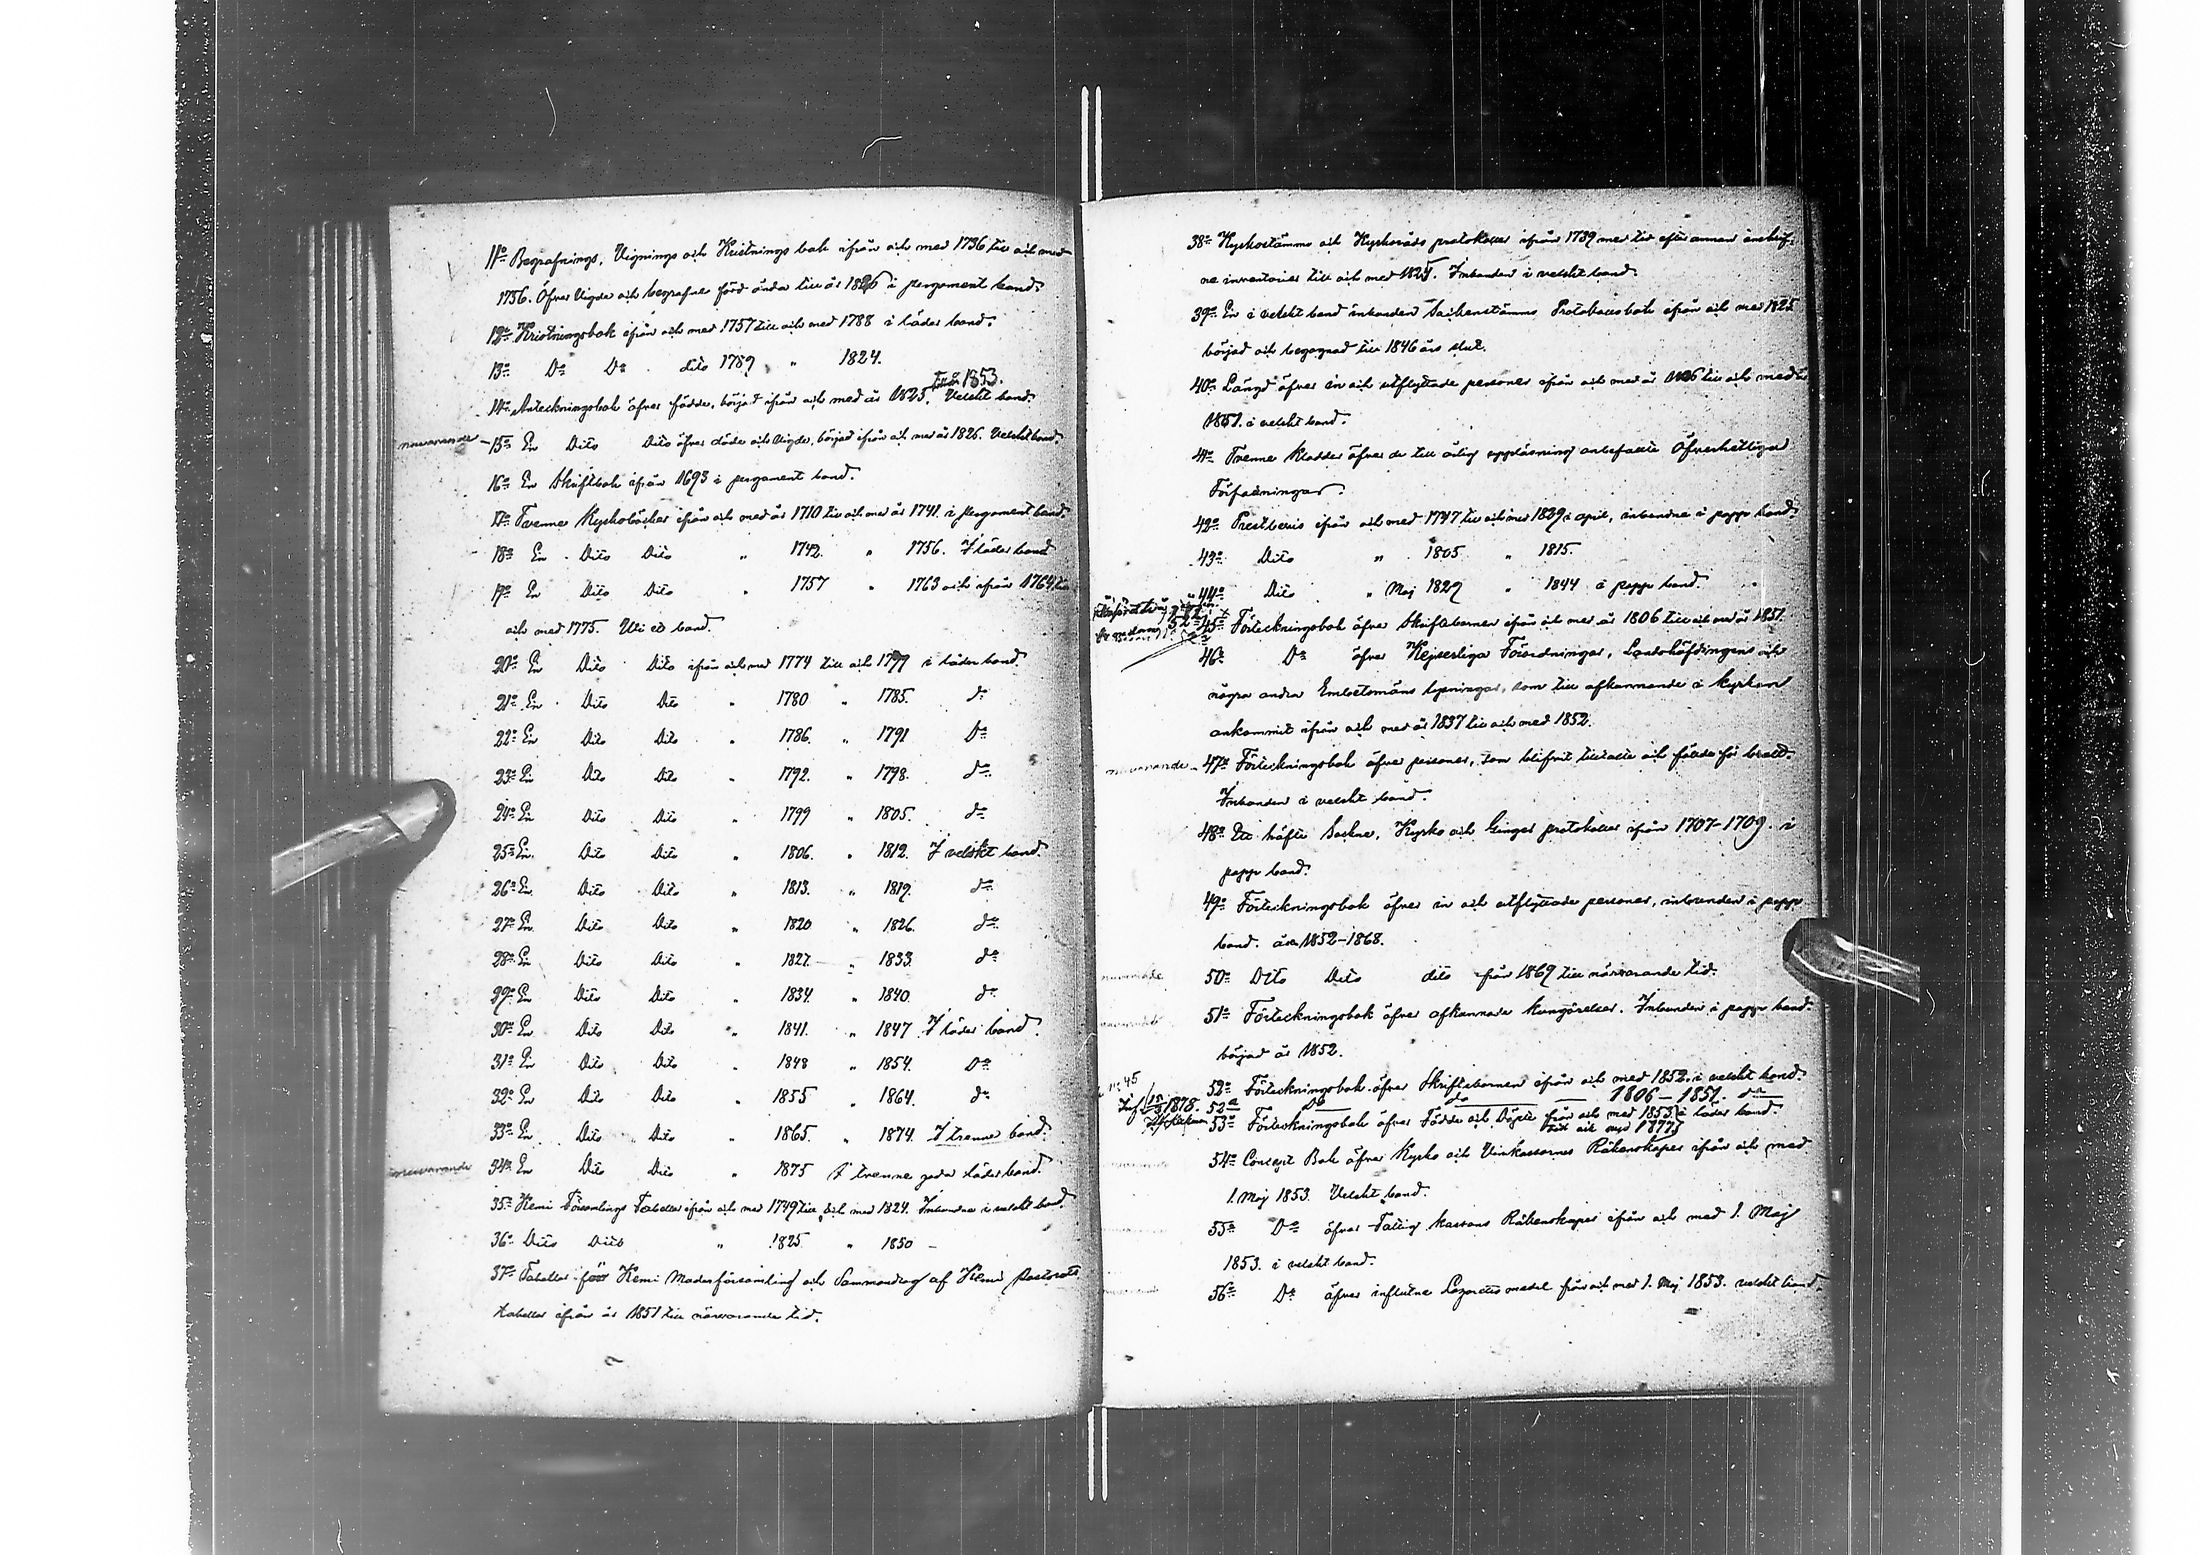 11o Begrafnings, Vignings och Kristnings bok ifrån och med 1736 till och med
1756. Öfver Vigde och begrafne förd ända till år 1826 i pergament band.
12o Kristningsbok ifrån och med 1757 till och med 1788 i läder band.
13o Do Do dito 1789 " 1824.
till år 1853.
14o Anteckningsbok öfver födde, börjad ifrån och med år 1825. Velskt band.
nuvarande – 15o En Dito Dito öfver döde och vigde, börjad ifrån och med år 1826. Velskt band.
16o En Skriftbok ifrån 1693 i pergament band.
17o Tvenne Kyrkoböcker ifrån och med år 1710 till och med år 1741. i pergament band.
18o En Dito Dito " 1742. " 1756. I läder band
19o En Dito Dito " 1757 " 1763 och ifrån 1764 till
och med 1775. Uti ett band.
20o En Dito Dito ifrån och med 1774 till och 1779 i läder band.
21o En Dito Dito " 1780 " 1785. do
22o En Dito Dito " 1786. " 1791 Do
23o En Dito Dito " 1792. " 1798. do
24o En Dito Dito " 1799 " 1805. do
25o En Dito Dito " 1806. " 1812. I velskt band.
26o En Dito Dito " 1813. " 1819. do
27o En Dito Dito " 1820 " 1826. do
28o En Dito Dito " 1827 " 1833 do
29o En Dito Dito " 1834. " 1840. do
30o En Dito Dito " 1841. " 1847 I läder band.
31o En Dito Dito " 1848 " 1854. Do
32o En Dito Dito " 1855 " 1864. do
33o En Dito Dito " 1865. " 1874. I trenne band.
nuvarande 34o En Dito Dito " 1875 I trenne goda läder band.
35o Kemi Församlings Tabeller ifrån och med 1749 till och med 1824. Inbundne i velskt band.
36o Dito Dito " 1825 " 1850 –
37o Tabeller för Kemi Moderförsamling och Sammandrag af Kemi Pastorats
tabeller ifrån år 1851 till närvarande tid.
38o Kyrkostämmo och Kyrkoråds protokoller ifrån 1739 med
ne inventarier till och med 1825. Inbunden i velskt band.
39o En i velskt band inbunden Sockenstämmo Protokollsbok ifrån och med 1825
börjad och begagnad till 1846 års slut.
40o Längd öfver in och utflyttade personer ifrån och med år 1806 till och med år
1851. i velskt band.
41o Tvenne Kladder öfver de till årlig uppläsning anbefallte Öfverhetliga
Författningar.
42o Prestbevis ifrån och med 1747 till och med 1829 i april, inbundne i papp band.
43o Dito " 1805 " 1815.
44o Dito " Maj 1829 " 1844 i papp band.
45o Förteckningsbok öfver Skriftebarnen ifrån och med år 1806 till och med år 1851.
46o Do öfver Kejserliga Förordningar, Landshöfdingens och
några andra Embetsmäns lysningar, som till afkunnande i kyrkan
ankommit ifrån och med år 1837 till och med 1852.
nuvarande – 47o Förteckningsbok öfver personer, som blifvit tilltalte och fällde för brott.
Inbunden i velskt band.
48o Ett häfte Sockne, Kyrko och Tings protokoller ifrån 1707–1709. i
papp band.
49o Förteckningsbok öfver in och utflyttade personer, inbunden i papp
band. åren 1852–1868.
nuvarande 50o Dito Dito dito från 1869 till närvarande tid.
nuvarande 51o Förteckningsbok öfver afkunnade kungörelser. Inbunden i papp band.
börjad år 1852.
No 45
52o Förteckningsbok öfver Skriftebarnen ifrån och med 1852. i velskt band.
1878. 52a Do do 1806–1851. do
53o Förteckningsbok öfver Födde och Döpte från och med 1853 i läder band.
till och med 1877
54o Concept Bok öfver Kyrko och Vinkassornes Räkenskaper ifrån och med
1. Maj 1853. Velskt band.
55o Do öfver Fattig kassans Räkenskaper ifrån och med 1. Maj
1853. i velskt band.
56o Do öfver influtne Lazaretts medel från och med 1. Maj 1853. velskt band.